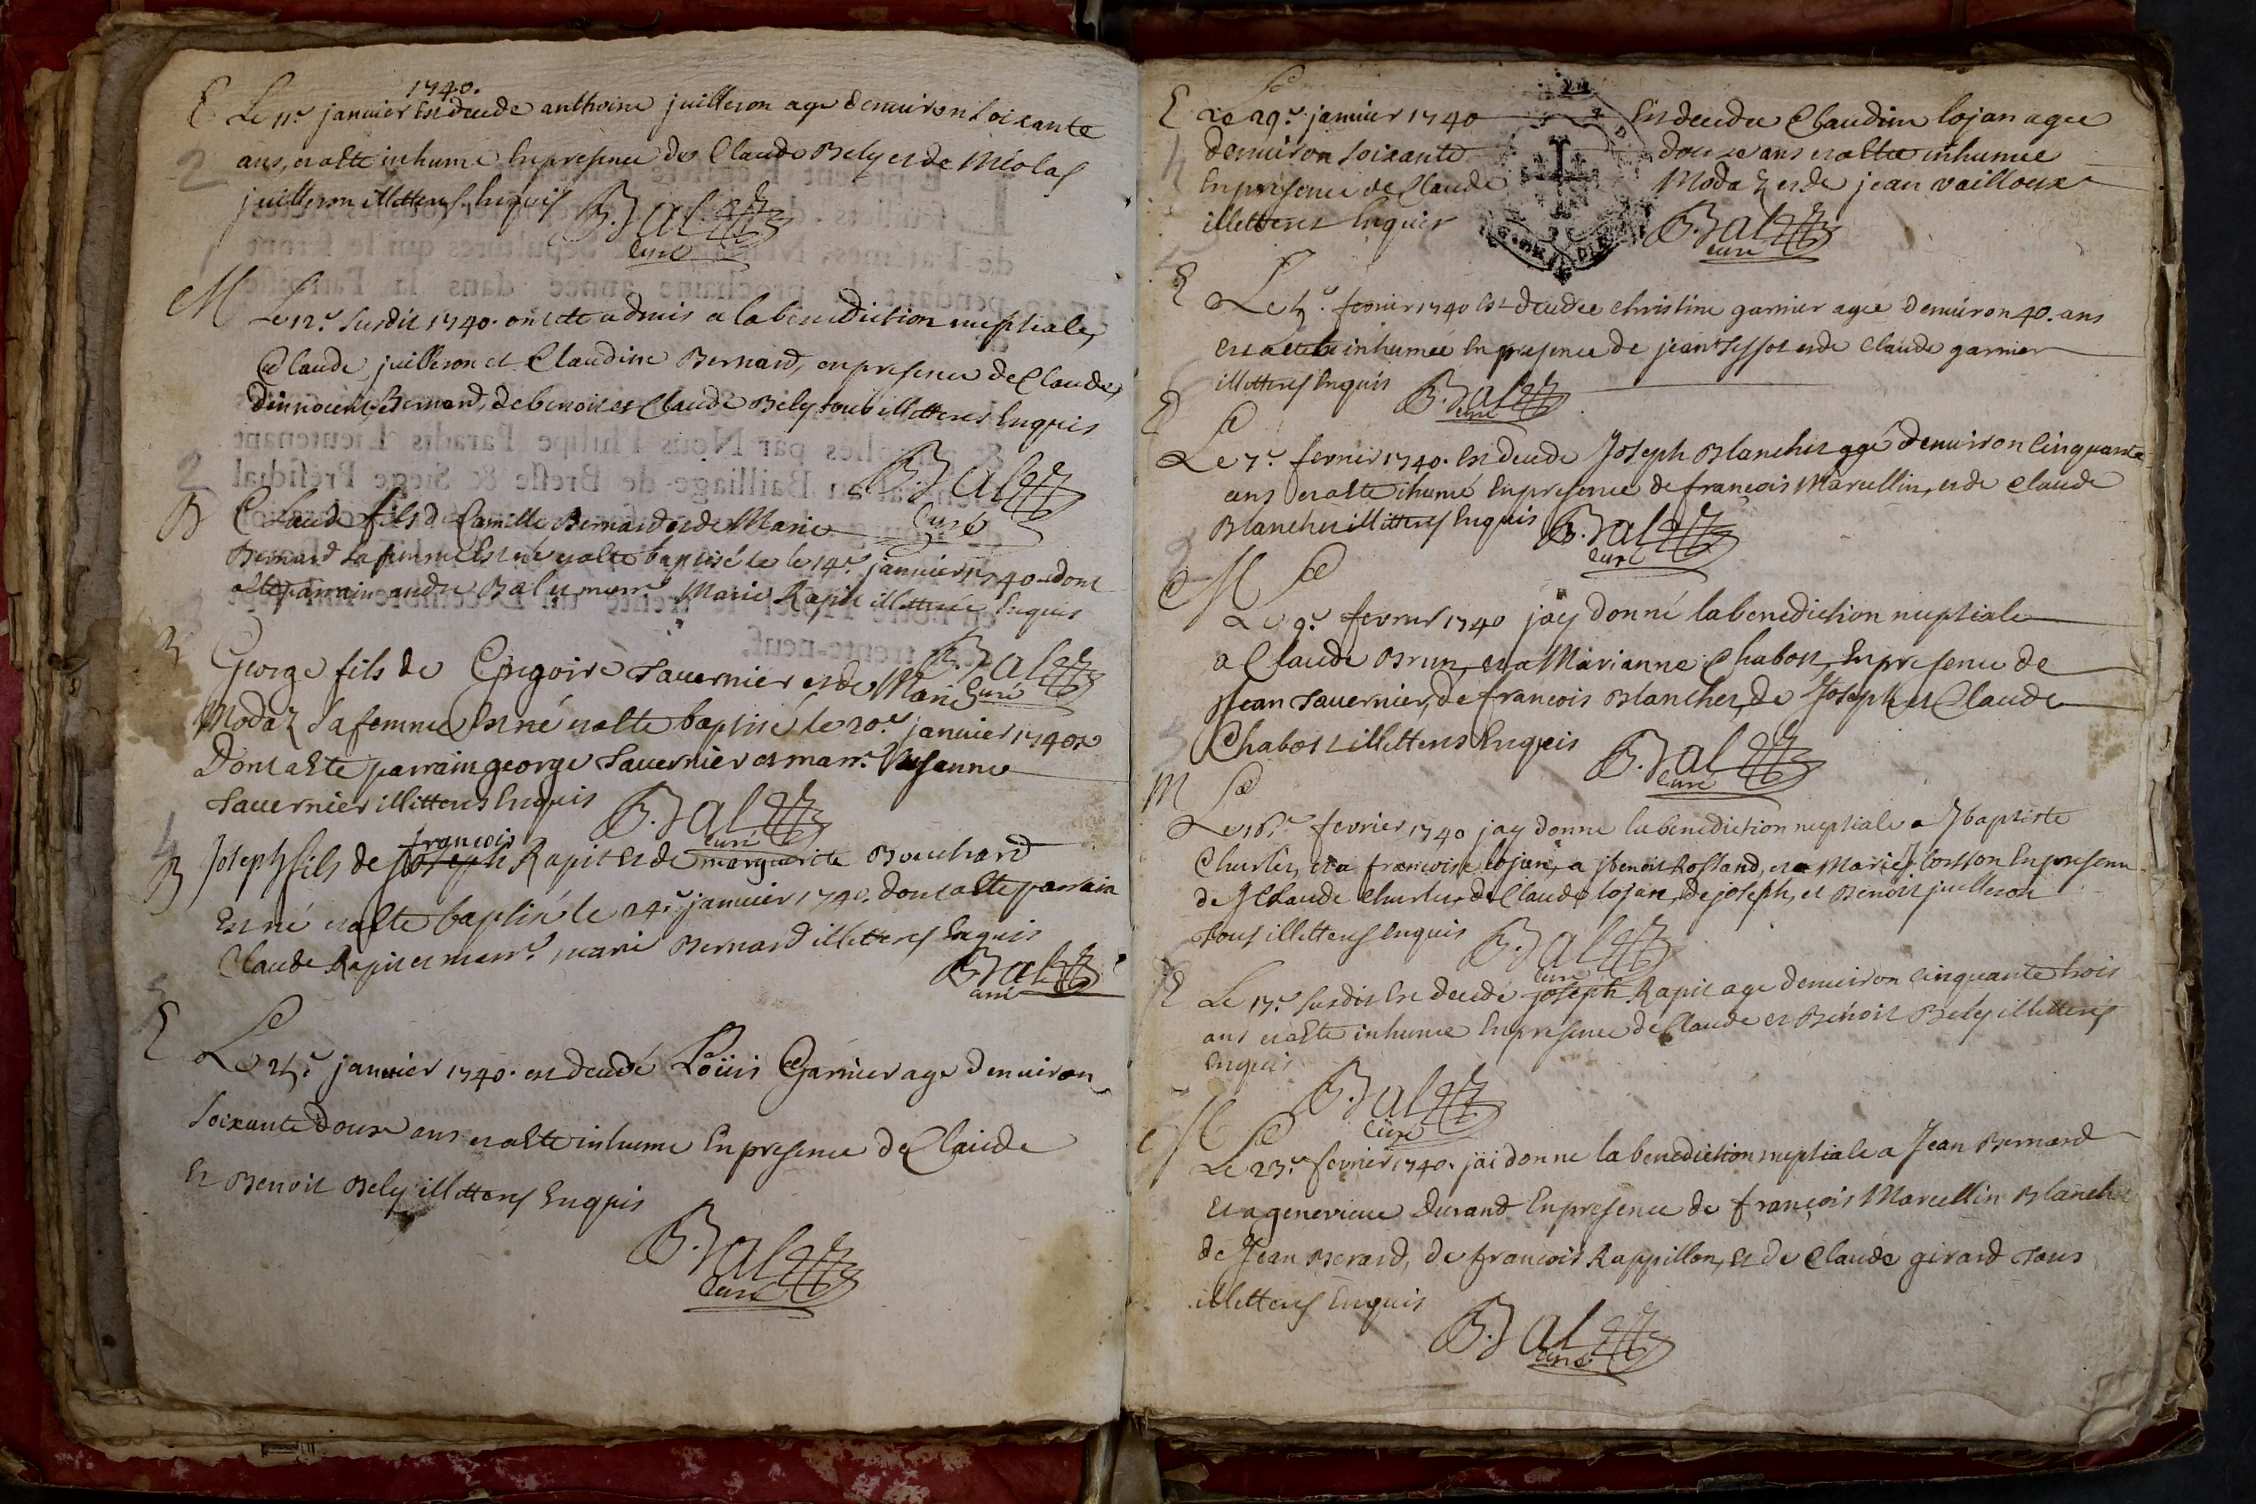 1740.
E Le 11e janvier Est decede anthoine juilleron age denviron soixante
ans, et a esté inhumé En presence de Claude Bely et de Nicolas
juilleron illitterés Enquis B. Bal
curé
M
Le 12e susdit 1740. ont été admis a la benediction nuptiale,
Claude juilleron et Claudine Bernard, en presence de Claude,
d'innocent Bernard, de benoit et Claude Bely tous illitterés Enquis
Bal
curé
B Claude fils d Camille Bernard et de Marie
Bernard sa femme Est né et a esté baptisé le le 14e janvier 1740 dont
a esté parrain andre Bal et marr.e Marie Rapit illitterée Enquis
B. Bal
curé
George fils de Gregoire Tavernier et de Marie
Modaz sa femme Est né et a esté baptisé le 20e janvier 1740
Dont a Esté parrain george Tavernier et marr.e Susanne
Tavernier illitterés Enquis B. Bal
curé
françois
B Joseph fils de Joseph Rapit Et de marguerite Bouchard
Est né et a esté baptisé le 24e janvier 1740. dont a esté parrain
Claude Rapit et marr.e marie Bernard illitterés Enquis
Bal
curé
E
Le 25e janvier 1740. est decedé Loüis Garnier age denviron
soixante douze ans et a Esté inhumé En presence de Claude
Et Benoit Bely illitterés Enquis
B. Bal
curé
E Le 29e janvier 1740 Est decedee Claudine lojan agee
denviron soixante douze ans et a esté inhumee
En presence de Claude Modaz et de jean vailloux
illitterés Enquis B. Bal
curé
E
Le 5e fevrier 1740 Est decedee christine garnier agée denviron 40. ans
Et a été inhumée En presence de jean et de claude garnier
illitterés Enquis B. Bal
curé
E
Le 7e fevrier 1740. Est decede Joseph Blanchet agé denviron Cinquante
ans et a esté ihumé En presence de françois Marcellin, et de claude
Blanchet illitterés Enquis B. Bal
curé
M
Le 9e fevrier 1740 jay donné la benediction nuptiale
a Claude Brun, et a Marianne Chabost, En presence de
Jean Tavernier, de françois Blanchet, de Joseph et Claude
Chabost illitterés Enquis B. Bal
curé
M
Le 16e fevrier 1740 jay donne la benediction nuptiale a Jbaptiste
Churlet, et a francoise lojan, a jbenoit Rolland, et a Marie En presence
de jClaude Churlet, de Claude lojan, de joseph, et Benoit juilleron
Tous illitterés Enquis B. Bal
curé
E Le 17e susdit Est decedé joseph Rapit age denviron cinquante trois
ans et a Esté inhumé En presence de Claude et Benoit Bely illitterés
Enquis
B. Bal
curé
M
Le 23e fevrier 1740. jai donne la benediction nuptiale a Jean Bernard
Et a genevieve Durand En presence de françois Marcellin Blanchet
de Jean Berard, de francois Rappillon, Et de Claude girard Tous
illitterés Enquis
B. Bal
curé